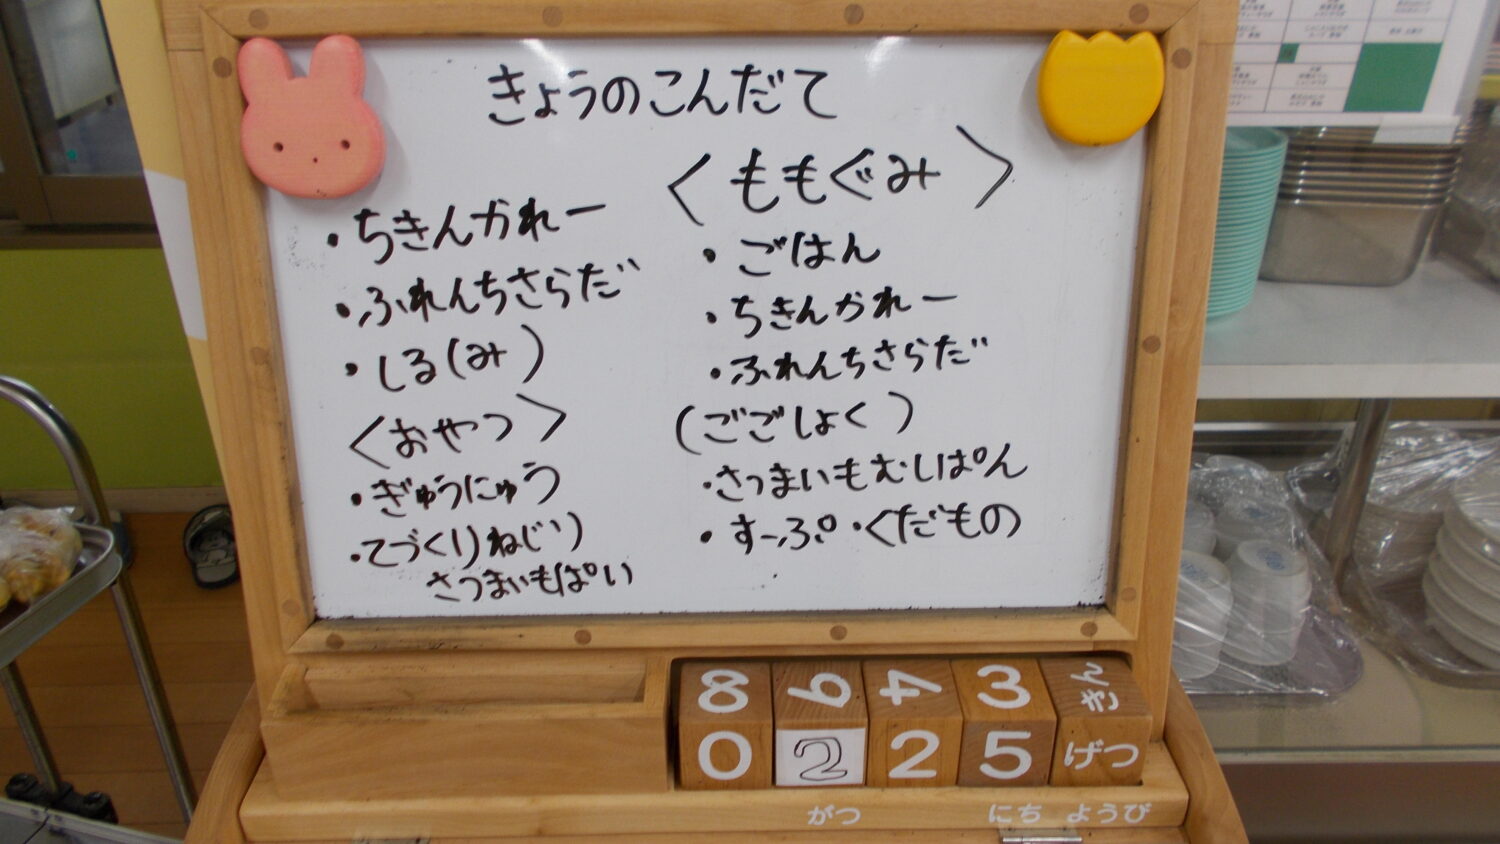 きょうのこんだて
・ちきんかれー
・ふれんちさらだ
・しる(み)
<おやつ>
・ぎゅうにゅう
・てづくりねじり
さつまいもぱい
<ももぐみ>
・ごはん
・ちきんかれー
・ふれんちさらだ
(ごごしょく)
・さつまいもむしぱん
・すーぷ・くだもの
8 6 4 3 きん
0 2 2 5 げつ
がつ にち ようび